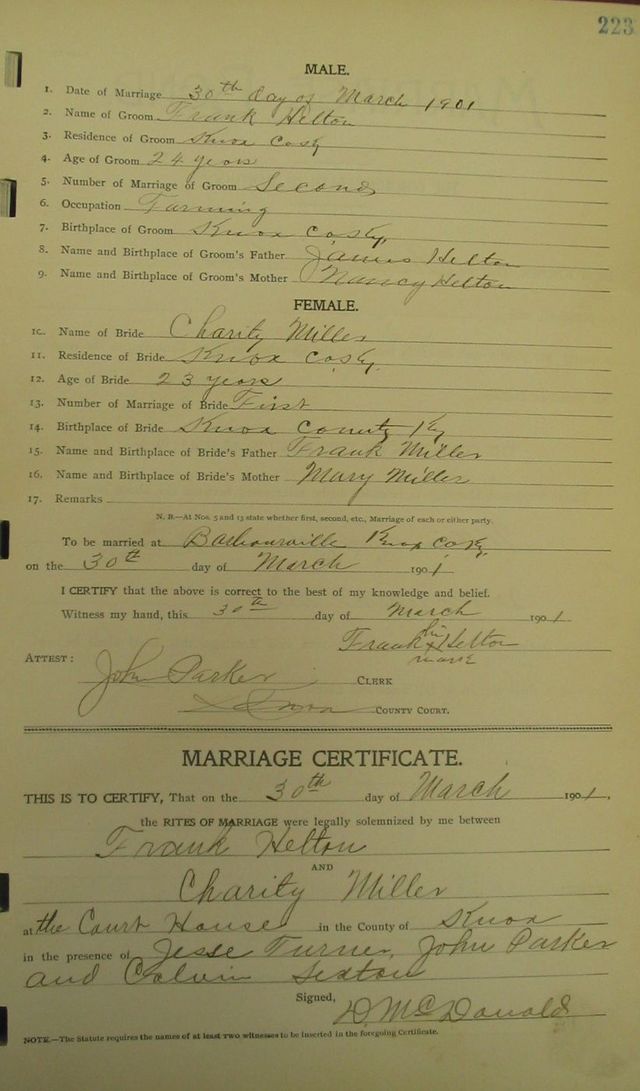 223
MALE.
1. Date of Marriage 30th day of March 1901
2. Name of Groom Frank Helton
3. Residence of Groom Knox Co Ky
4. Age of Groom 24 years
5. Number of Marriage of Groom Second
6. Occupation Farming
7. Birthplace of Groom Knox Co Ky,
8. Name and Birthplace of Groom's Father James Helton
9. Name and Birthplace of Groom's Mother Nancy Helton
FEMALE.
10. Name of Bride Charity Miller
11. Residence of Bride Knox Co Ky.
12. Age of Bride 23 years
13. Number of Marriage of Bride First
14. Birthplace of Bride Knox County Ky
15. Name and Birthplace of Bride's Father Frank Miller
16. Name and Birthplace of Bride's Mother Mary Miller
17. Remarks
N. B.—At Nos. 5 and 13 state whether first, second, etc., Marriage of each or either party.
To be married at Barbourville Knox Co Ky.
on the 30th day of March 1901
I CERTIFY that the above is correct to the best of my knowledge and belief.
Witness my hand, this 30th day of March 1901
his
Frank x Helton
mark
ATTEST: John Parker CLERK
Knox COUNTY COURT.
MARRIAGE CERTIFICATE.
THIS IS TO CERTIFY, That on the 30th day of March 1901,
the RITES OF MARRIAGE were legally solemnized by me between
Frank Helton
AND
Charity Miller
at the Court House in the County of Knox
in the presence of Jesse Turner, John Parker
and Calvin Sexton
Signed,
D. McDonald
NOTE.—The Statute requires the names of at least two witnesses to be inserted in the foregoing Certificate.